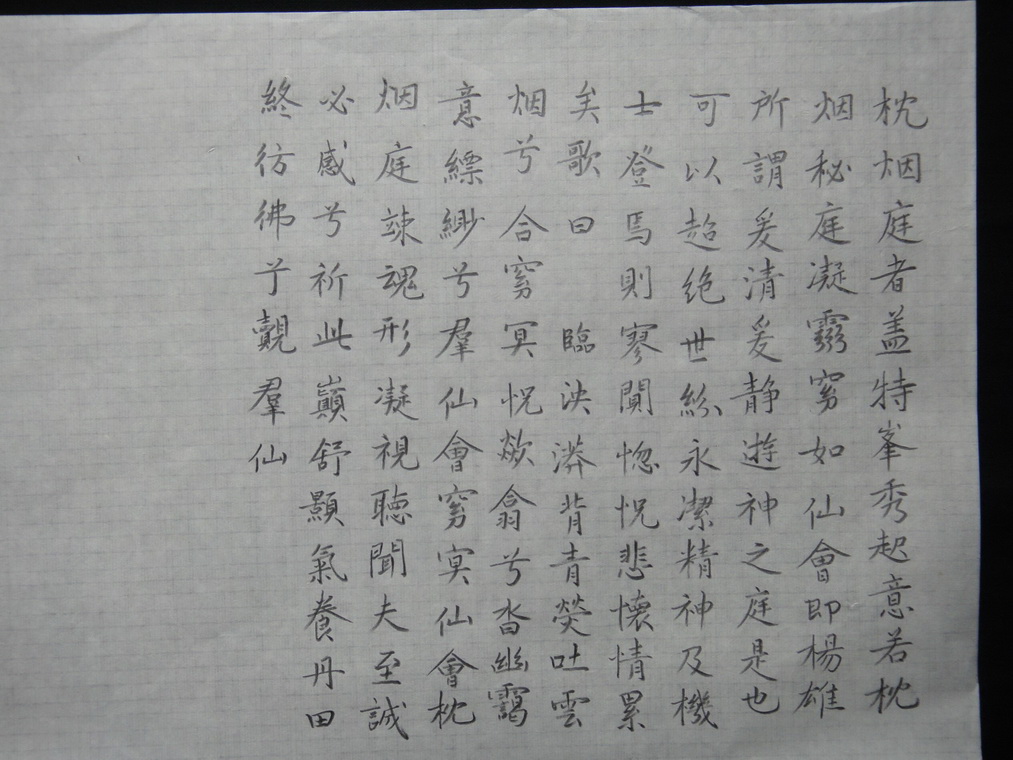 枕烟庭者盖特峯秀起意若枕
烟秘庭凝霧窈如仙會即楊雄
所謂爰清爰静遊神之庭是也
可以超绝世紛永潔精神及機
士登焉則寥闃惚怳悲懷情累
矣歌曰 臨泱漭背青熒吐雲
烟兮合窈冥怳欻翕兮沓幽靄
意縹緲兮羣仙會窈冥仙會枕
烟庭竦魂形凝視聴聞夫至誠
必感兮祈此巔舒顥氣養丹田
終彷彿兮覿羣仙